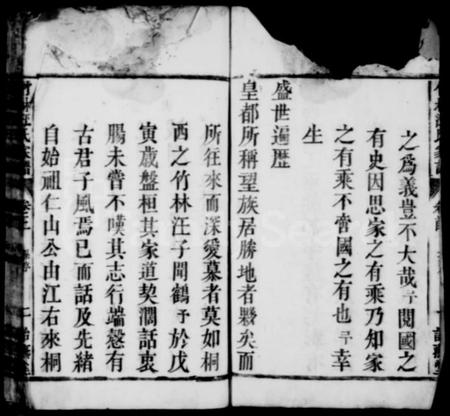 之為義豈不大哉予閱國之
有史因思家之有乘乃知家
之有乘不啻國之有也予幸
生
盛世遍歷
皇都所稱望族居勝地者夥矣而
所往來而深愛慕者莫如桐
西之竹林汪子聞鶴予於戊
寅歲盤桓其家道契濶話衷
腸未嘗不嘆其志行端愨有
古君子風焉已而話及先緒
自始祖仁山公由江右來桐